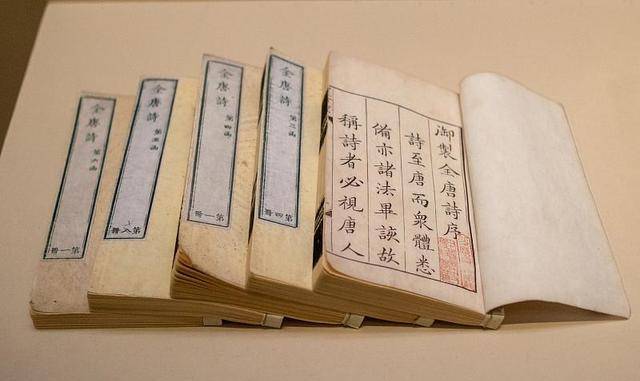 御製全唐詩序
詩至唐而衆體悉
備亦諸法畢該故
稱詩者必視唐人
全唐詩
第三函
第四冊
全唐詩
第四函
全唐詩
第五函
第八冊
全唐詩
第六函
第一冊